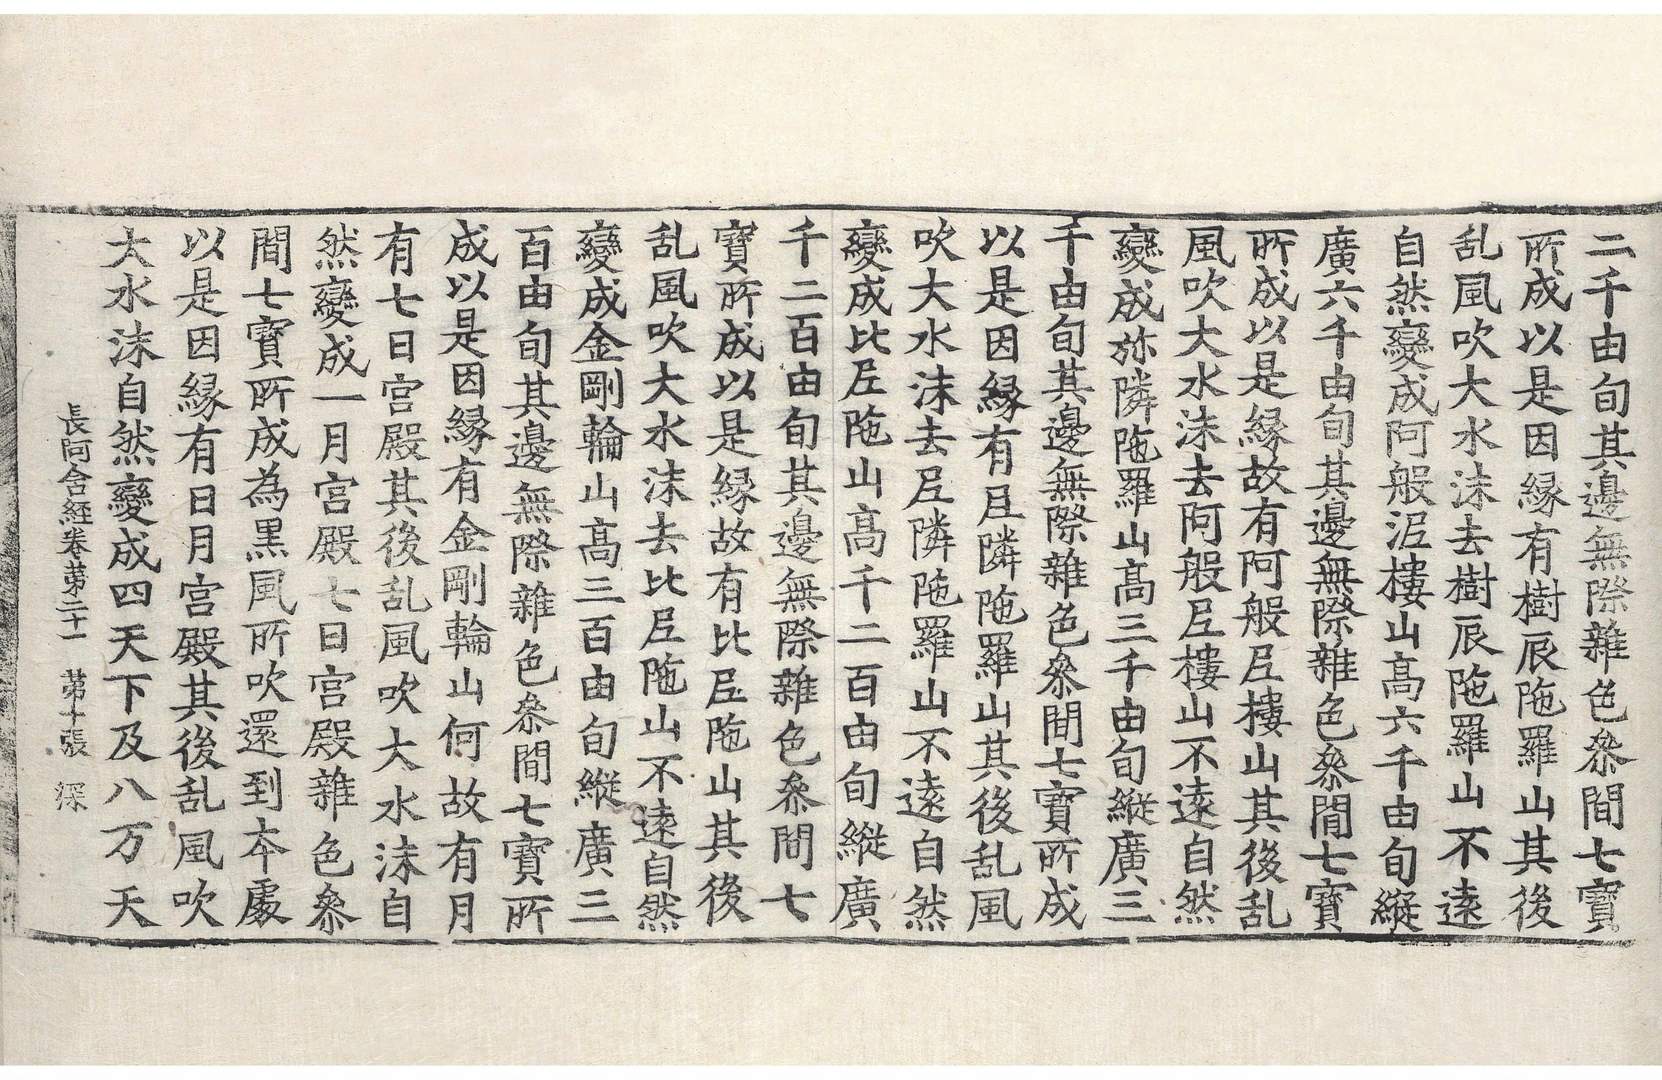 二千由旬其邊無際雜色叅間七寳
所成以是因縁有樹辰陁羅山其後
乱風吹大水沫去樹辰陁羅山不遠
自然變成阿般泥樓山髙六千由旬縱
廣六千由旬其邊無際雜色叅間七寳
所成以是縁故有阿般尼樓山其後乱
風吹大水沫去阿般尼樓山不遠自然
變成弥隣陁羅山髙三千由旬縱廣三
千由旬其邊無際雜色叅間七寳所成
以是因縁有尼隣陁羅山其後乱風
吹大水沫去尼隣陁羅山不遠自然
變成比尼陁山髙千二百由旬縱廣
千二百由旬其邊無際雜色叅間七
寳所成以是縁故有比尼陁山其後
乱風吹大水沫去比尼陁山不遠自然
變成金剛輪山髙三百由旬縱廣三
百由旬其邊無際雜色叅間七寳所
成以是因縁有金剛輪山何故有月
有七日宫殿其後乱風吹大水沫自
然變成一月宫殿七日宫殿雜色叅
間七寳所成為黒風所吹還到夲處
以是因縁有日月宫殿其後乱風吹
大水沫自然變成四天下及八万天
長阿含経卷苐二十一 苐十張 深